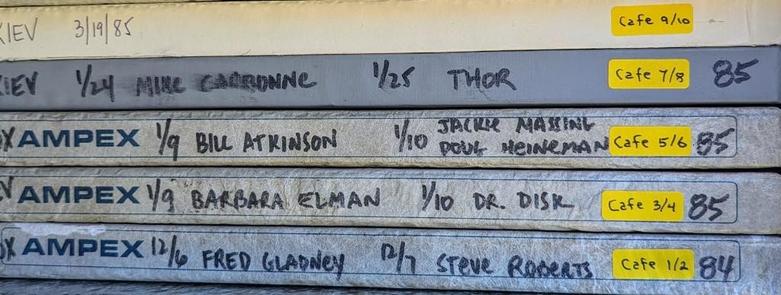 KIEV 3/19/85 Cafe 9/10
KIEV 1/24 MIKE CARBONNE 1/25 THOR Cafe 7/8 85
AMPEX 1/9 BILL ATKINSON 1/10 JACKIE MASSING
DOUG HEINEMAN Cafe 5/6 85
AMPEX 1/9 BARBARA ELMAN 1/10 DR. DISK Cafe 3/4 85
AMPEX 12/6 FRED GLADNEY 12/7 STEVE ROBERTS Cafe 1/2 84